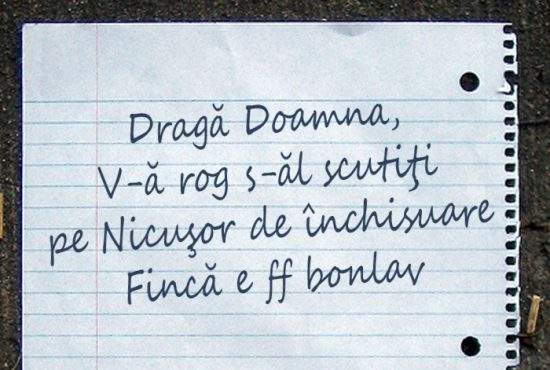 Dragă Doamna,
V-ă rog s-ăl scutiţi
pe Nicuşor de închisuare
Fincă e ff bonlav